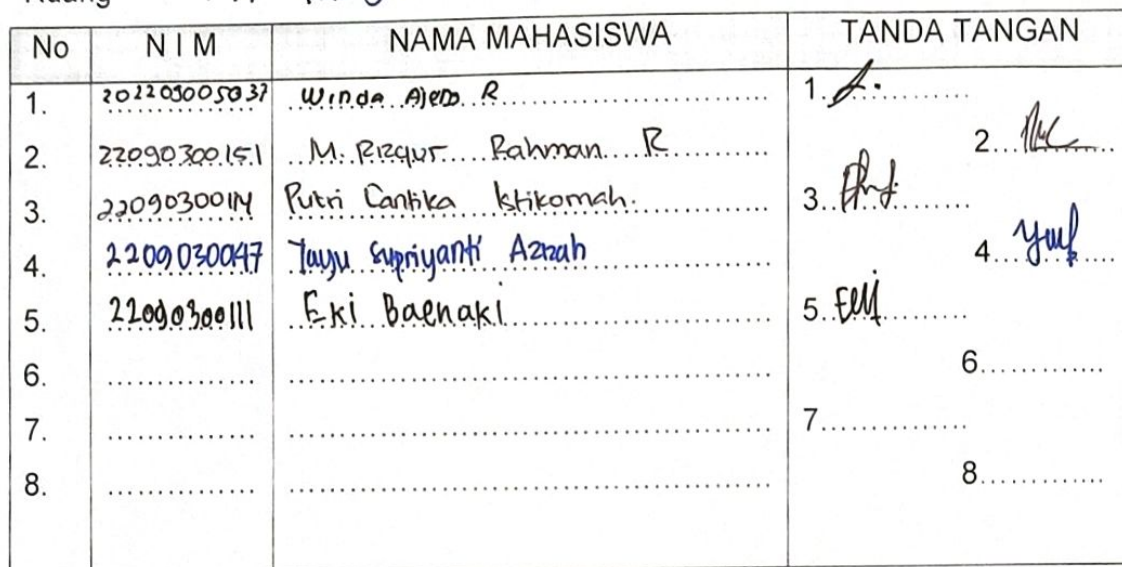 No NIM NAMA MAHASISWA TANDA TANGAN
1. 202209005037 Winda Ajeng R 1.
2. 22090300151 M. Rizqur Rahman R 2.
3. 22090300114 Putri Cantika Istikomah. 3.
4. 2209030047 Tayu Supriyanti Azizah 4.
5. 22090300111 Eki Baenaki 5.
6. 6.
7. 7.
8. 8.